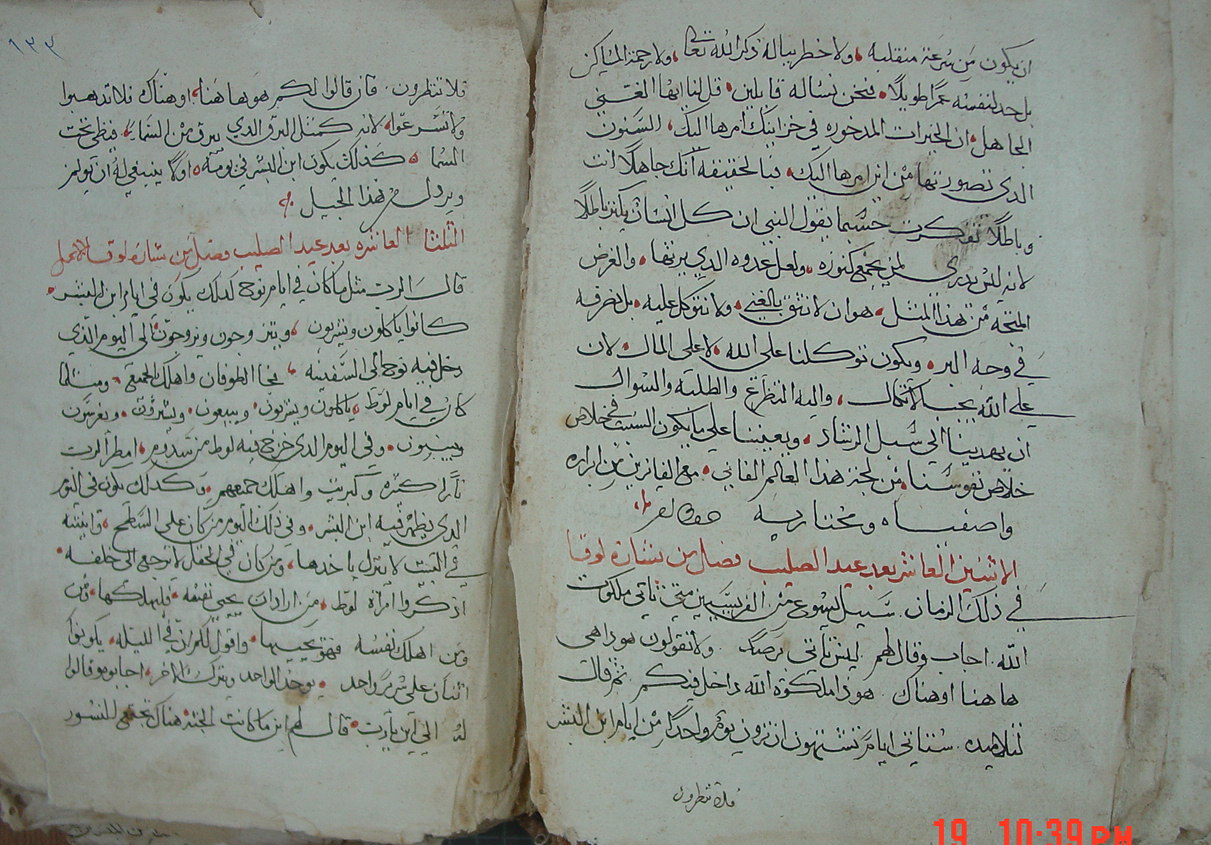 ان يكون من سرعة منقلبه ولا خطر بباله ذكر الله تعالى ولا رحمة المساكين
بل حد لنفسه عمرا طويلا فنحن نساله قايلين قل لنا ايها الغني
الجاهل ان الخيرات المدخوره في خزاينك امرها اليك السنون
الذي تصورتها من اين امرها اليك فبالحقيقه انك جاهلا انت
وباطلا تفكرت حسبما يقول النبي ان كل انسان يكنز باطلا
لانه ليس يدري لمن يجمع كنوزه ولعل عدوه الذي يرثها والغرض
المتجه من هذا المثل هو ان لا نثق بالغنى ولا نتوكل عليه بل نصرفه
في وجه البر ويكون توكلنا على الله لا على المال لان
على الله يجب الاتكال واليه التضرع والطلبه والسوال
ان يهدينا الى سبيل الرشاد ويعيننا على ما يكون السبب في خلاص
خلاص نفوسنا من لجة هذا العالم الفاني مع الفايزين من ابراره
واصفياه ومختاريه
الاثنين العاشر بعد عيد الصليب فصل من بشارة لوقا
في ذلك الزمان سيل يسوع من الفريسيين متى تاتي ملكوت
الله اجاب وقال لهم ليس تاتي برصد ولا تقولون هوذا هي
هاهنا او هناك هوذا ملكوة الله داخل فيكم ثم قال
لتلاميده ستاتي ايام تشتهون ان ترون يوم واحدا من ايام ابن البشر
فلا تنظرون
١٣٣
فلا تنظرون فان قالوا لكم هوذا هاهنا او هناك فلا تدهبوا
ولا تسرعوا لانه كمثل البرق الذي يبرق من السما فيضي تحت
السما كذلك يكون ابن البشر في يومه اولا ينبغي له ان يولم
ويردل من هذا الجيل
الثلثا العاشره بعد عيد الصليب فصل من بشارة لوقا
قال الرب مثل ما كان في ايام نوح كدلك يكون في ايام ابن البشر
كانوا ياكلون ويشربون ويتزوجون ويزوجون الى اليوم الذي
دخل فيه نوح الى السفينه فجا الطوفان واهلك الجميع ومثلما
كان في ايام لوط ياكلون ويشربون ويبيعون ويشترون ويغرسون
ويبنون وفي اليوم الذي خرج فيه لوط من سدوم امطر الرب
نارا وكبريت واهلك جميعهم وكدلك يكون في اليوم
الذي يظهر فيه ابن البشر وفي ذلك اليوم من كان على السطح وانيته
في البيت لا ينزل ياخدها ومن كان في الحقل لا يرجع الى خلفه
اذكروا امراة لوط من اراد ان يحيي نفسه فليهلكها ومن
ومن اهلك نفسه فهو يحييها واقول لكم ان في الليله يكونوا
اثنان على سرير واحد يوخد الواحد ويترك الاخر اجابوه وقالوا
له الى اين يارب قال لهم اين ما كانت الجثه هناك تجتمع النسور
19 10:39 PM